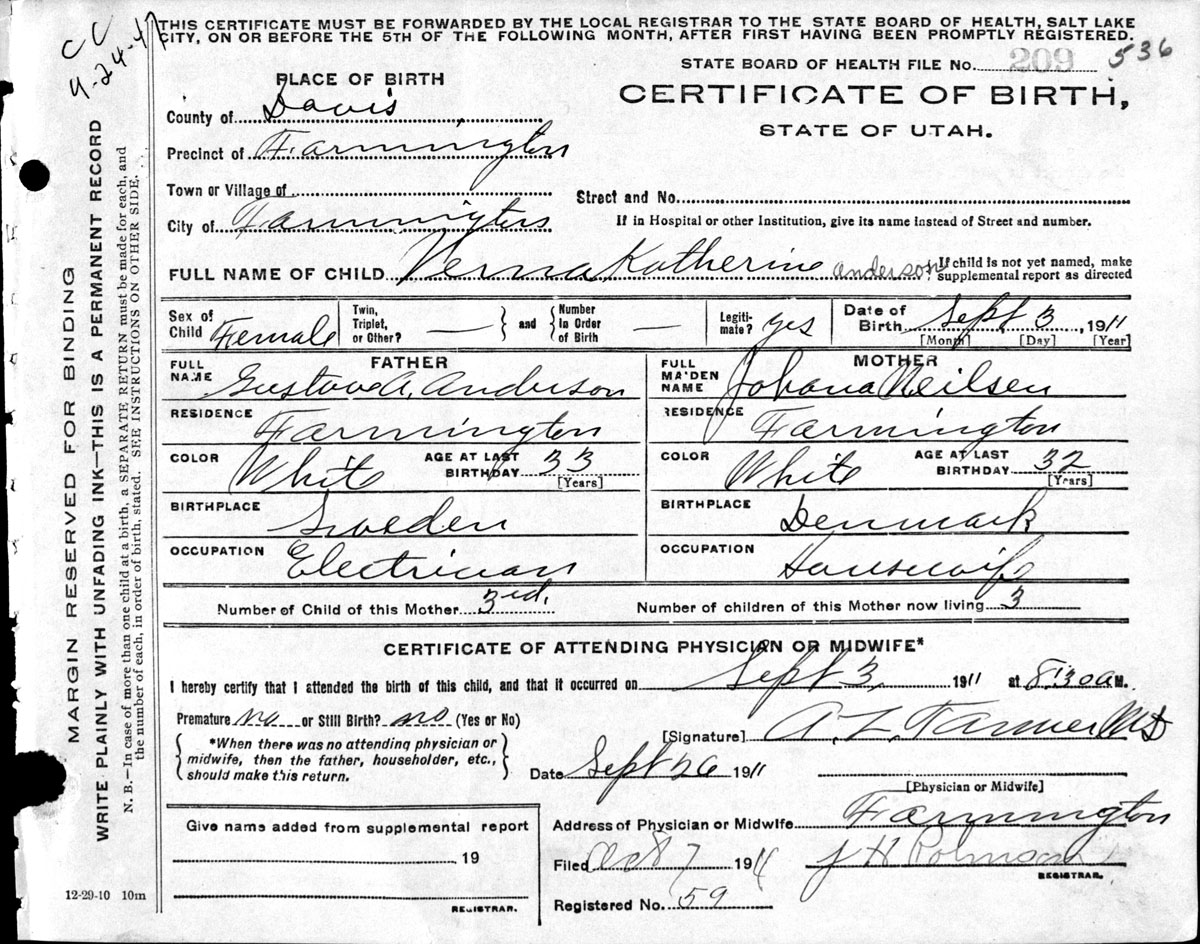 THIS CERTIFICATE MUST BE FORWARDED BY THE LOCAL REGISTRAR TO THE STATE BOARD OF HEALTH, SALT LAKE
CITY, ON OR BEFORE THE 5TH OF THE FOLLOWING MONTH, AFTER FIRST HAVING BEEN PROMPTLY REGISTERED.
CC
9-24-41
STATE BOARD OF HEALTH FILE No. 209 536
PLACE OF BIRTH
CERTIFICATE OF BIRTH,
STATE OF UTAH.
County of Davis
Precinct of Farmington
Town or Village of
Street and No.
City of Farmington
If in Hospital or other Institution, give its name instead of Street and number.
FULL NAME OF CHILD Verna Katherine anderson
If child is not yet named, make
supplemental report as directed
Sex of Child Female
Twin, Triplet, or Other? —
and
Number In Order of Birth —
Legiti-mate? yes
Date of Birth Sept 3, 1911
[Month] [Day] [Year]
FATHER
FULL NAME Gustave A. Anderson
MOTHER
FULL MAIDEN NAME Johana Neilsen
RESIDENCE Farmington
RESIDENCE Farmington
COLOR White AGE AT LAST BIRTHDAY 33 [Years]
COLOR White AGE AT LAST BIRTHDAY 32 [Years]
BIRTHPLACE Sweden
BIRTHPLACE Denmark
OCCUPATION Electrician
OCCUPATION Housewife
Number of Child of this Mother 3rd. Number of children of this Mother now living 3
CERTIFICATE OF ATTENDING PHYSICIAN OR MIDWIFE*
I hereby certify that I attended the birth of this child, and that it occurred on Sept 3, 1911 at 8:30 a M.
Premature no or Still Birth? no (Yes or No)
*When there was no attending physician or
midwife, then the father, householder, etc.,
should make this return.
[Signature] A. L. Farmer MD
Date Sept 26 1911
[Physician or Midwife]
Give name added from supplemental report
19
REGISTRAR.
Address of Physician or Midwife Farmington
Filed Oct 7 191
J H Robinson
REGISTRAR.
Registered No. 59
12-29-10 10m
MARGIN RESERVED FOR BINDING
WRITE PLAINLY WITH UNFADING INK—THIS IS A PERMANENT RECORD
N. B.—In case of more than one child at a birth, a SEPARATE RETURN must be made for each, and
the number of each, in order of birth, stated. SEE INSTRUCTIONS ON OTHER SIDE.